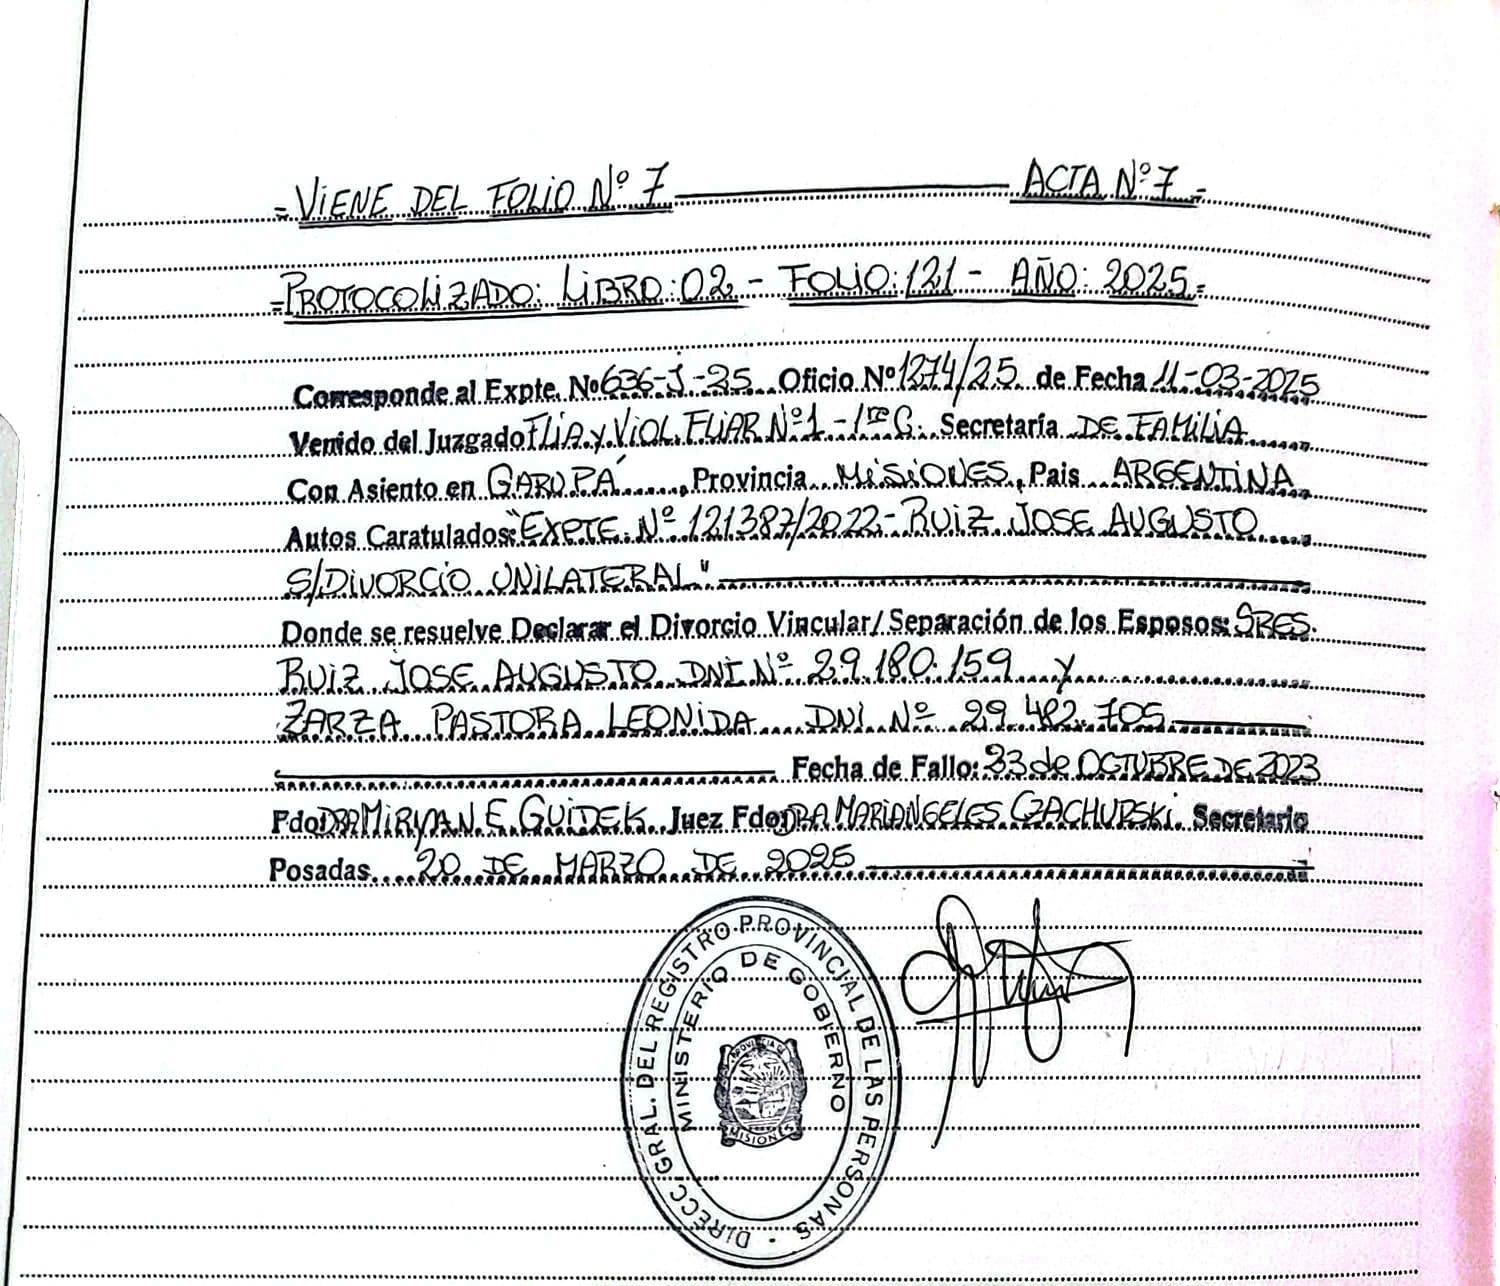 = VIENE DEL FOLIO Nº 7 ACTA Nº 7 =
= PROTOCOLIZADO: LIBRO: 02 - FOLIO: 121 - AÑO: 2025 =
Corresponde al Expte. Nº 636-J-25 Oficio Nº 1274/25 de Fecha 11-03-2025
Venido del Juzgado FLIA y VIOL. FLIAR Nº 1 - 1re C. Secretaría DE FAMILIA
Con Asiento en GARUPÁ, Provincia MISIONES, Pais ARGENTINA
Autos Caratulados: "EXPTE. Nº 121387/2022 - RUIZ JOSE AUGUSTO
S/DIVORCIO UNILATERAL"
Donde se resuelve Declarar el Divorcio Vincular/ Separación de los Esposos: SRES.
RUIZ JOSE AUGUSTO DNI Nº 29.180.159 y
ZARZA PASTORA LEONIDA DNI Nº 29.482.705
Fecha de Fallo: 23 de OCTUBRE DE 2023
Fdo: DRA MIRYAN E. GUIDEK Juez Fdo: DRA MARIANGELES CZACHURSKI Secretario
Posadas 20 DE MARZO DE 2025
DIRECC. GRAL. DEL REGISTRO PROVINCIAL DE LAS PERSONAS
MINISTERIO DE GOBIERNO
PROVINCIA DE
MISIONES